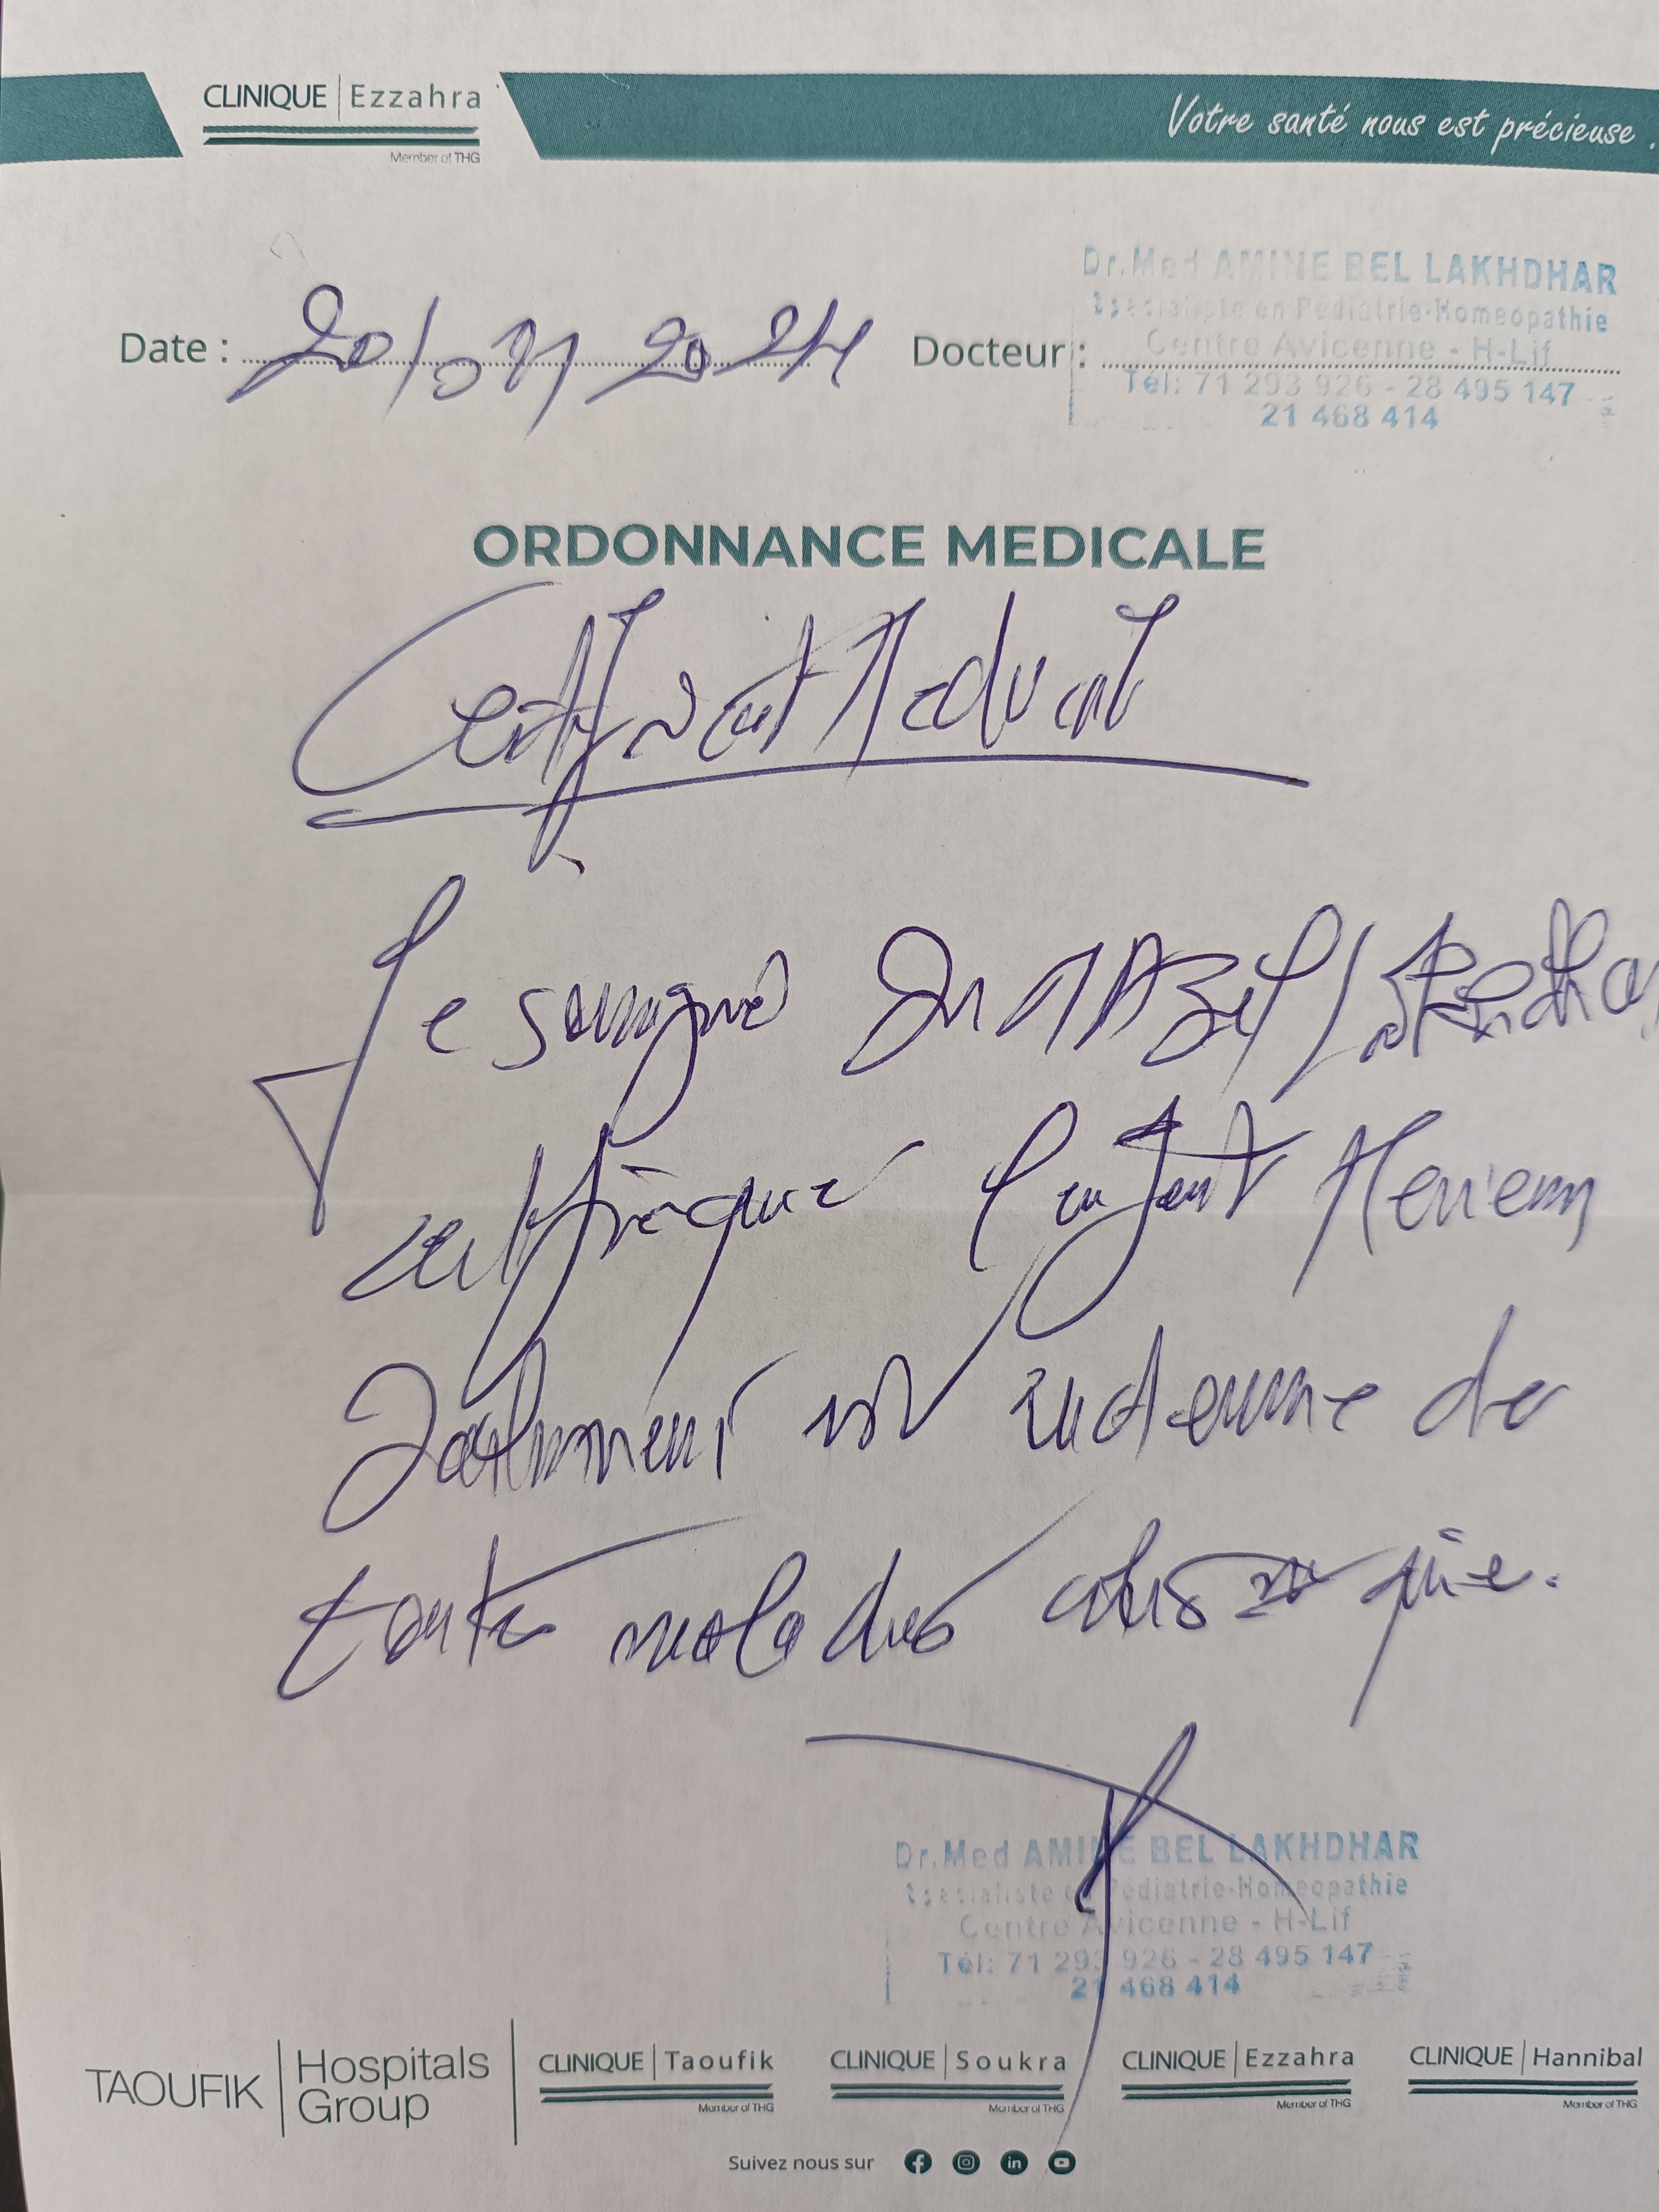 CLINIQUE | Ezzahra
Member of THG
Votre santé nous est précieuse .
Dr.Med AMINE BEL LAKHDHAR
Specialiste en Pediatrie-Homeopathie
Centre Avicenne - H-Lif
Tél: 71 293 926 - 28 495 147
21 468 414
Date : 20/ 2024 Docteur :
ORDONNANCE MEDICALE
Certificat Medical
Je soussigné Dr Bel Lakhdhar
certifie que l'enfant Meriem
est indemne de
toute maladies
Dr.Med AMINE BEL LAKHDHAR
Specialiste en Pediatrie-Homeopathie
Centre Avicenne - H-Lif
Tél: 71 293 926 - 28 495 147
21 468 414
TAOUFIK | Hospitals Group
CLINIQUE | Taoufik
Member of THG
CLINIQUE | Soukra
Member of THG
CLINIQUE | Ezzahra
Member of THG
CLINIQUE | Hannibal
Member of THG
Suivez nous sur